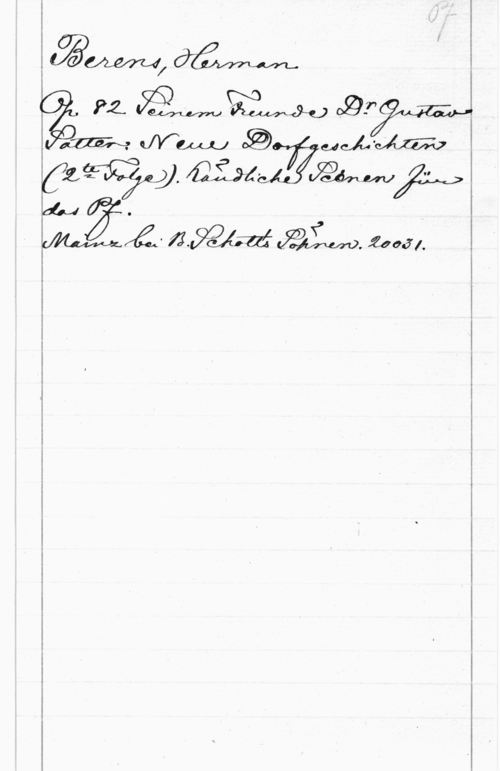 Berens, Herman
Op. 82 Seinem Freunde Dr Gustav
Satter: Neue Dorfgeschichten
(2te Folge). Ländliche Scenen für
das Pf.
Mainz bei B. Schott's Söhnen. 20031.